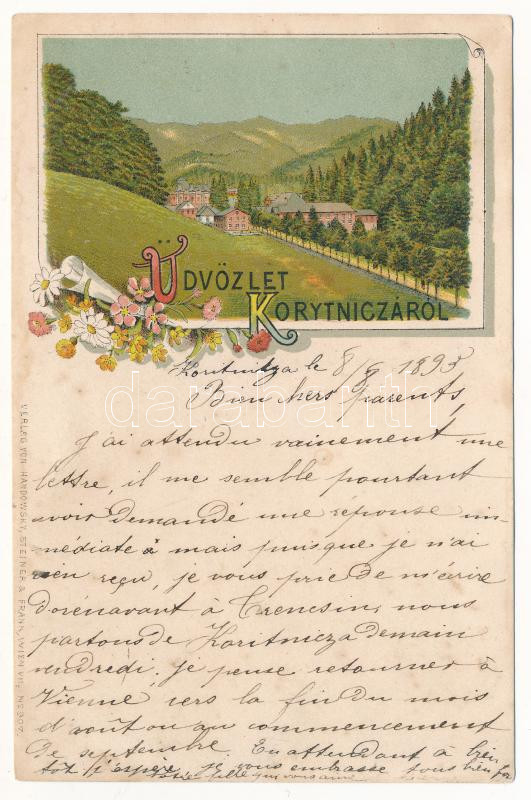 ÜDVÖZLET
KORYTNICZÁRÓL
Koritnitza le 8/ 1895
Bien chers parents,
J'ai attendu vainement une
lettre, il me semble pourtant
avoir demandé une réponse im-
médiate à mais puisque je n'ai
rien reçu, je vous prie de m'écrire
dorénavant à Trencsin, nous
partons de Koritnicza demain
vendredi. Je pense retourner à
Vienne vers la fin du mois
d'août ou au commencement
de septembre. En attendant à bien
tôt j'espère je vous embrasse tous bien
Votre fille qui vous aime
VERLAG VON HARDOWSKY, STEINER & FRANK, WIEN VII, No 902.
darabanth